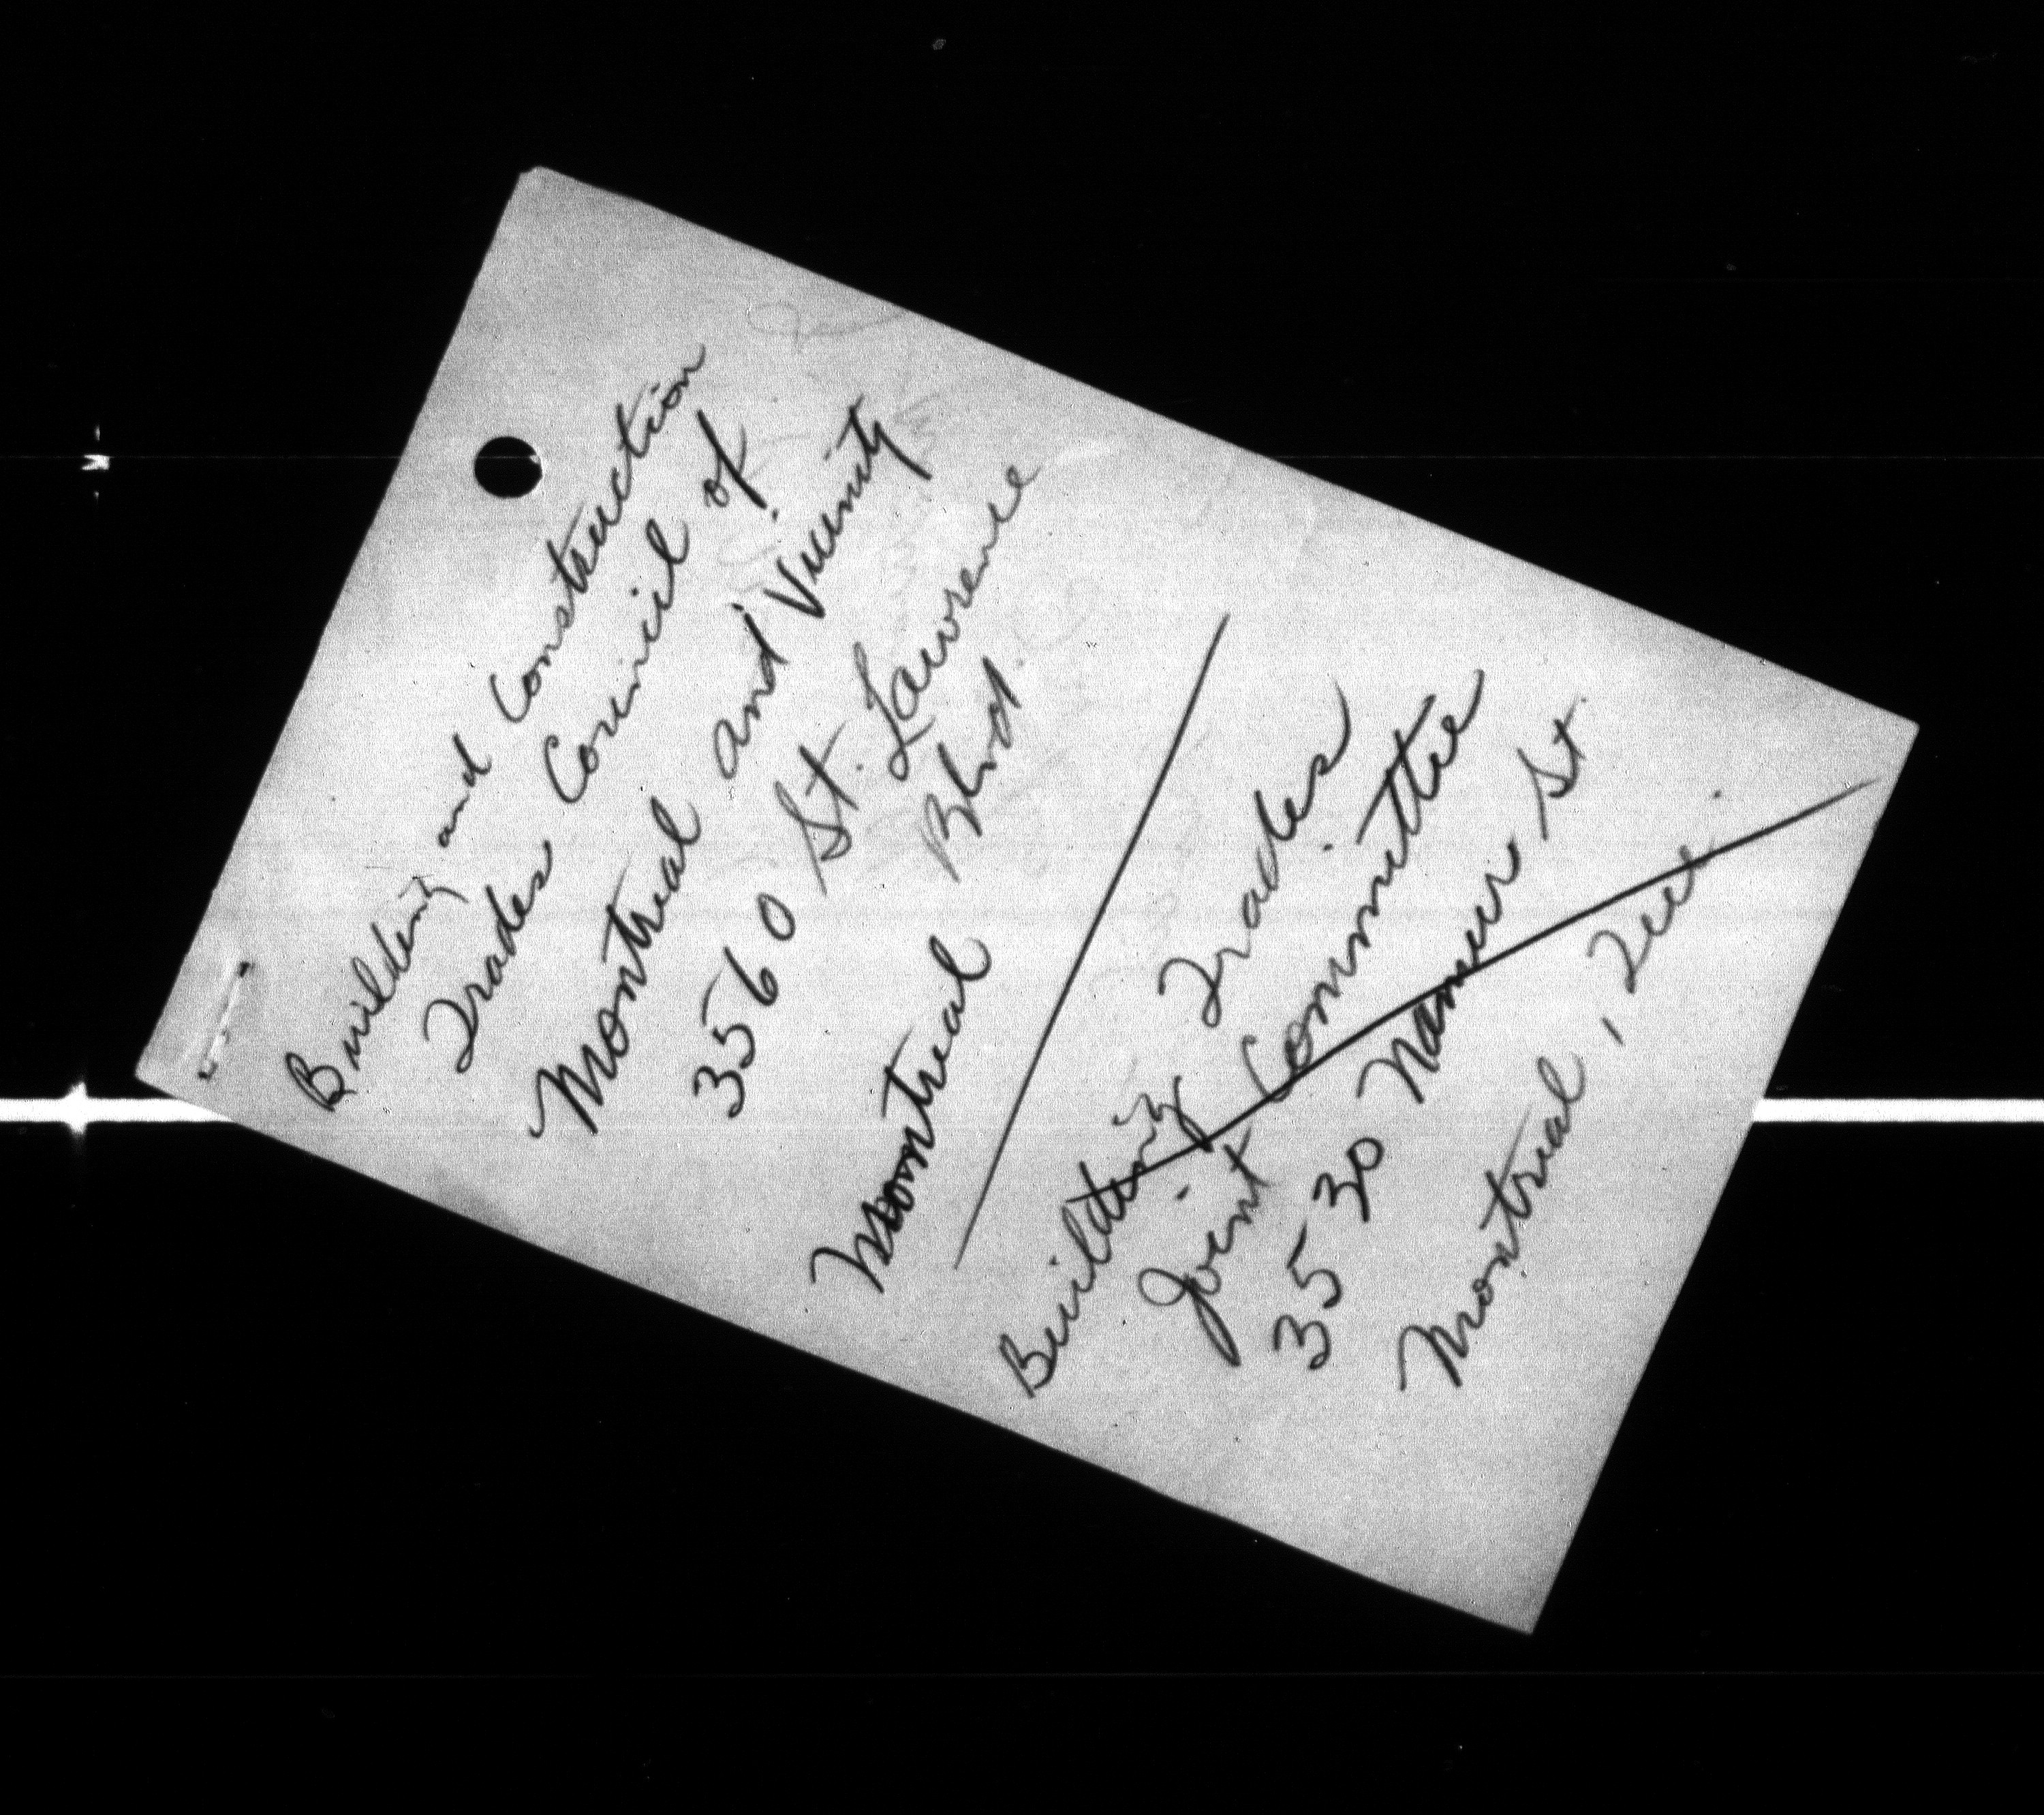 Building and Construction
Trades Council of
Montreal and Vicinity
3560 St. Lawrence
Blvd.
Montreal
Building Trades
Joint Committee
3530 St.
Montreal, Que.